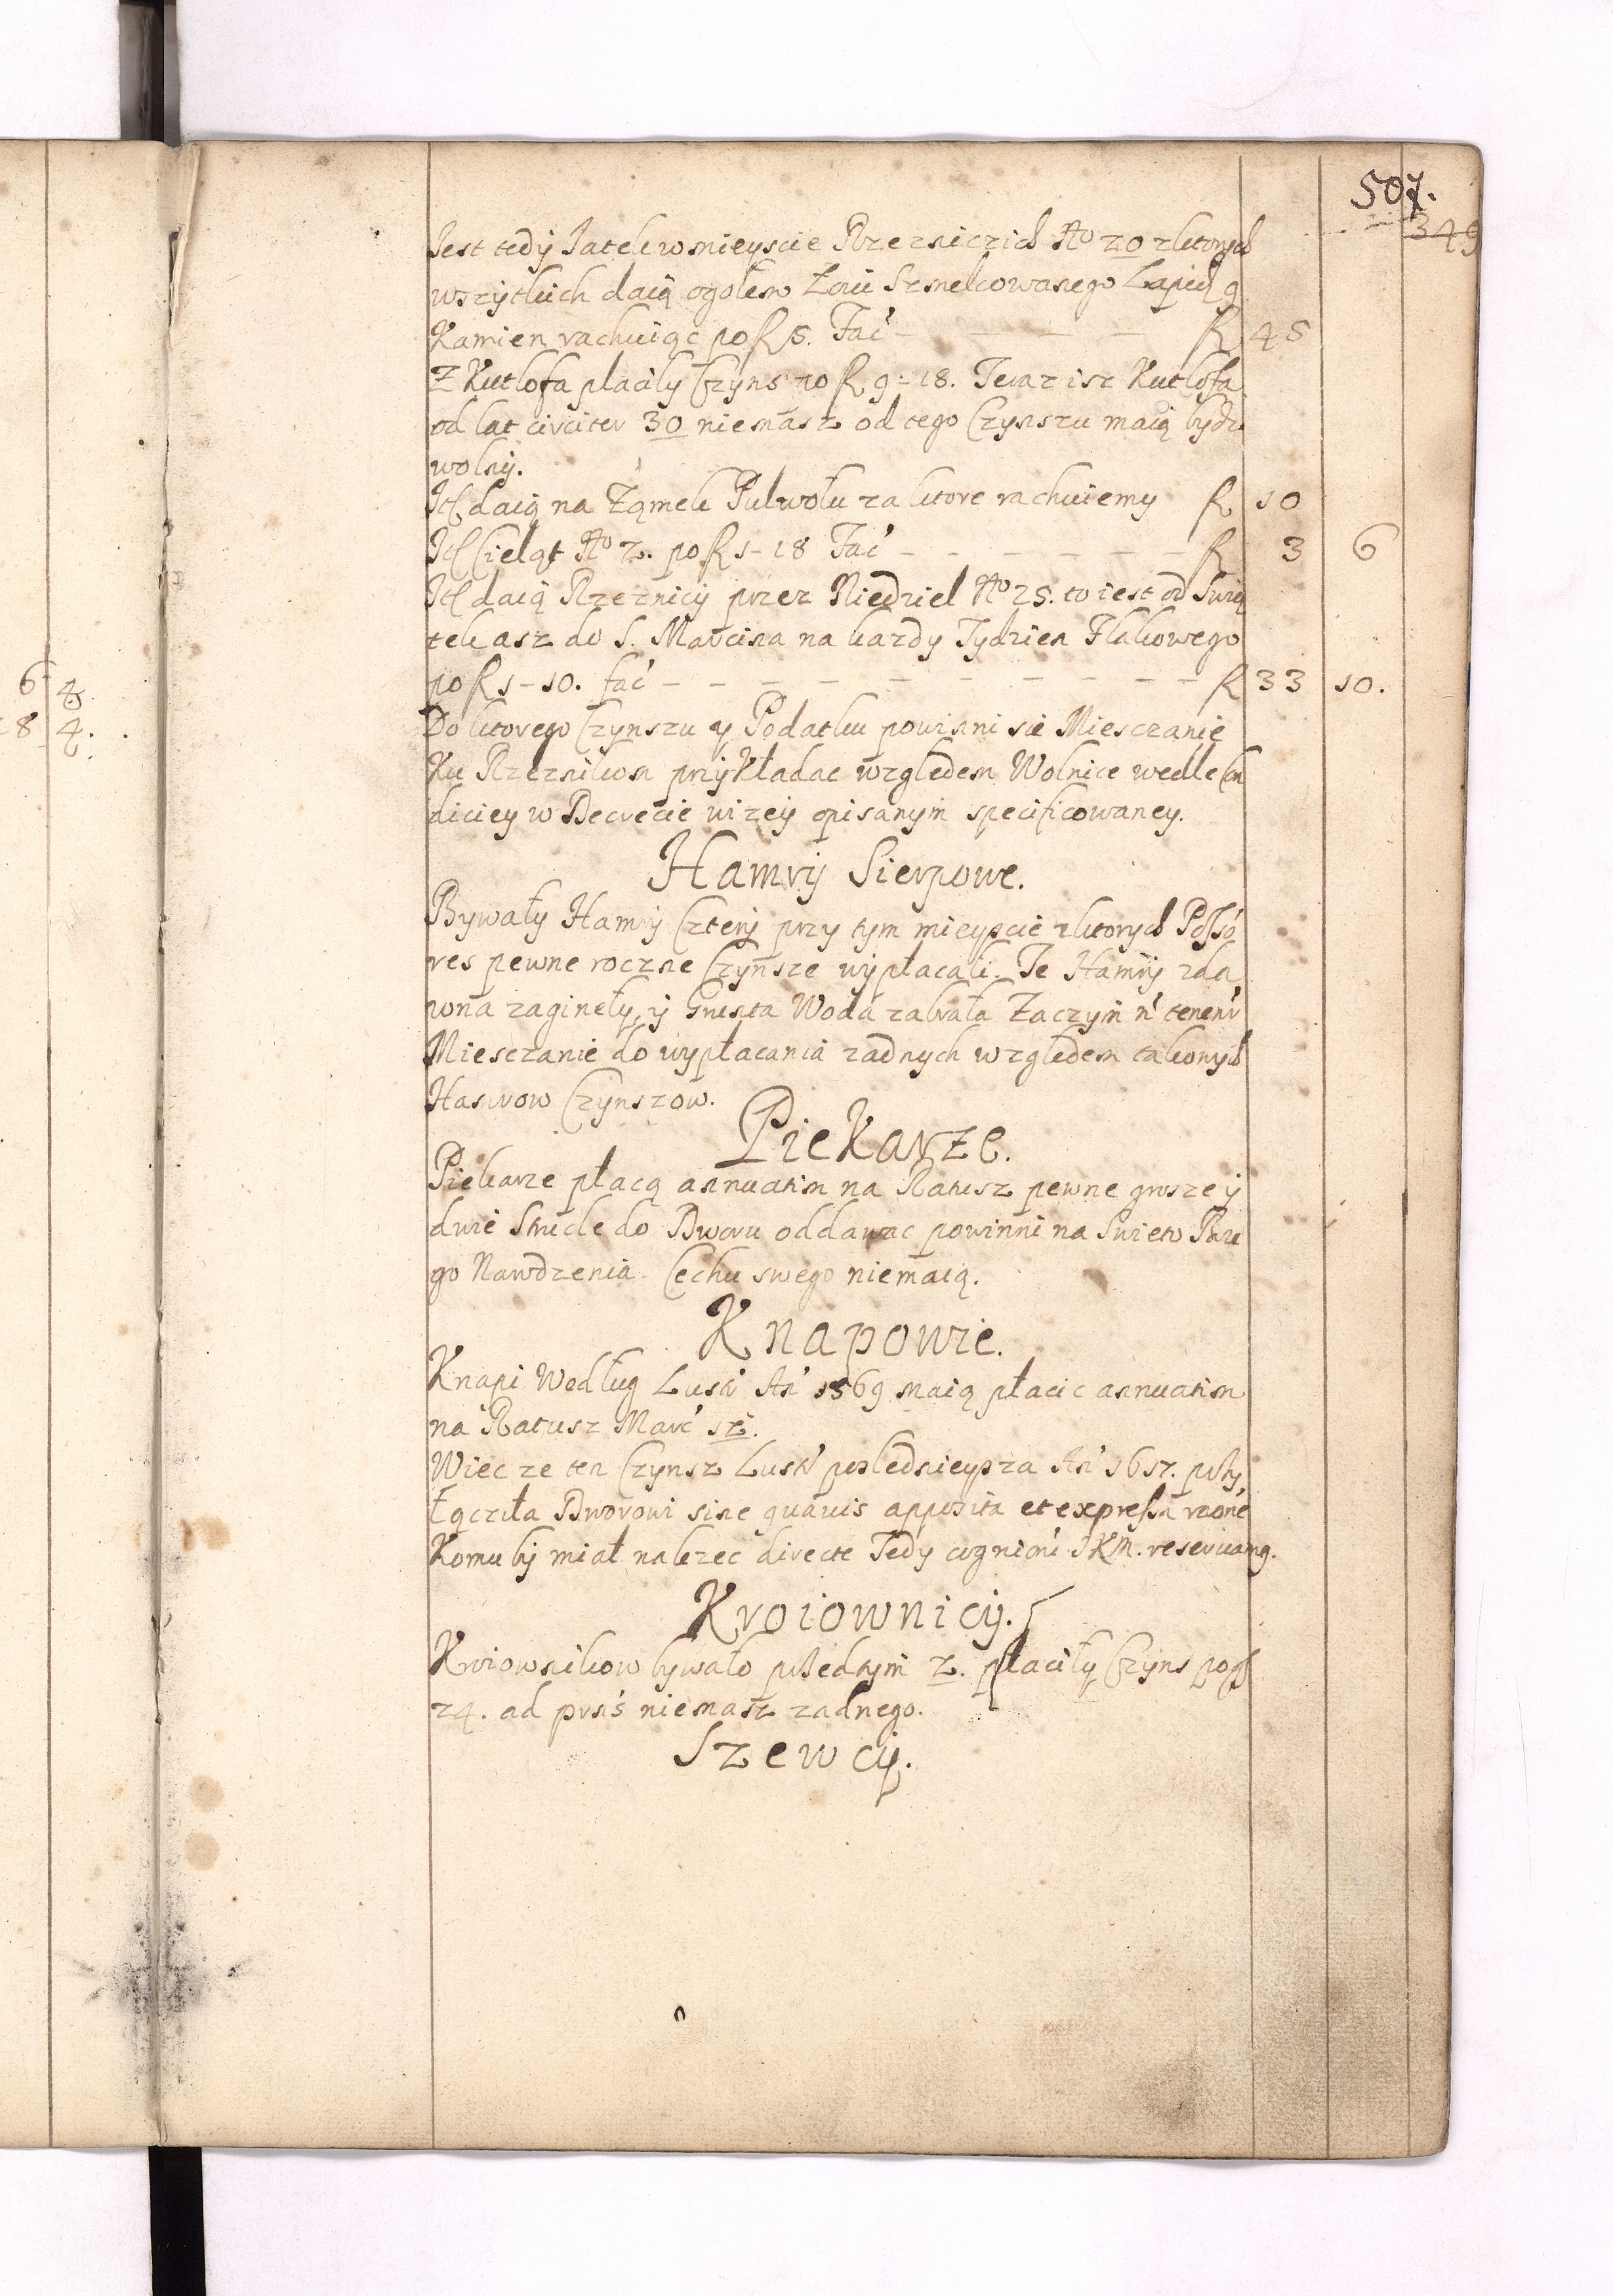 507.
349
Iest tedÿ Iatek w mieyscie Rzezniczich No 20 z ktorych
wszÿtkich daią ogołem Łoiu Szmelcowanego Lapid 9
Kamien rachuiąc po R 5. Fać — — — — R 45
Z Kutlofa płacilÿ Czÿns po R 9 - 18. Teraz isz Kutlofa
od lat circiter 30 niemasz od tego Czynszu maią bÿdz
wolnÿ.
It daią na Zamek Pulwołu za ktore rachuiemy R 10
It Cieląt No 2. po R 1 - 18 Fać — — — — — — R 3 6
It daią Rzeznicÿ przez Niedziel No 25. to iest od Swią
tek asz do S. Marcina na kazdy Tydzien Flakowego
po R 1 - 10. fać — — — — — — — — — R 33 10.
Do ktorego Czynszu y Podatku powinni sie Miesczanie
Ku Rzeznikom przÿkładac wzgledem Wolnice wedle Con
diciey w Decrecie wizeÿ opisanÿm specificowaney.
Hamrÿ Sierpowe.
Bywałÿ Hamrÿ Czterÿ przy tym mieyscie z ktorych Posso
res pewne roczne Czÿnsze wÿpłacali. Te Hamrÿ zda
wna zaginełÿ, ÿ Grunta Woda zabrała Zaczÿm n tenent
Miesczanie do wÿpłacania zadnych wzgledem takowych
Hamrow Czÿnszow.
PieKarze.
Piekarze płacą annuatim na Ratusz pewne grosze ÿ
dwie Strucle do Dworu oddawac powinni na Swieto Boze
go Narodzenia. Cechu swego niemaią.
Knapowie.
Knapi Według Lustr An 1569 maią płacic annuatim
na Ratusz Marc 12.
Wiec ze ten Czynsz Lustr posledniejsza An 1617. przÿ
łączÿła Dworowi sine quavis apposita et expressa raone
Komu bÿ miał nalezec directe Tedÿ cognitioni IKM. reservamg.
Kroiownicÿ.
Kroiownikow bywało przedtÿm 2. płacilÿ Czÿns po gr
24. ad prns niemasz zadnego.
Szewcÿ.
6 4.
18 4.